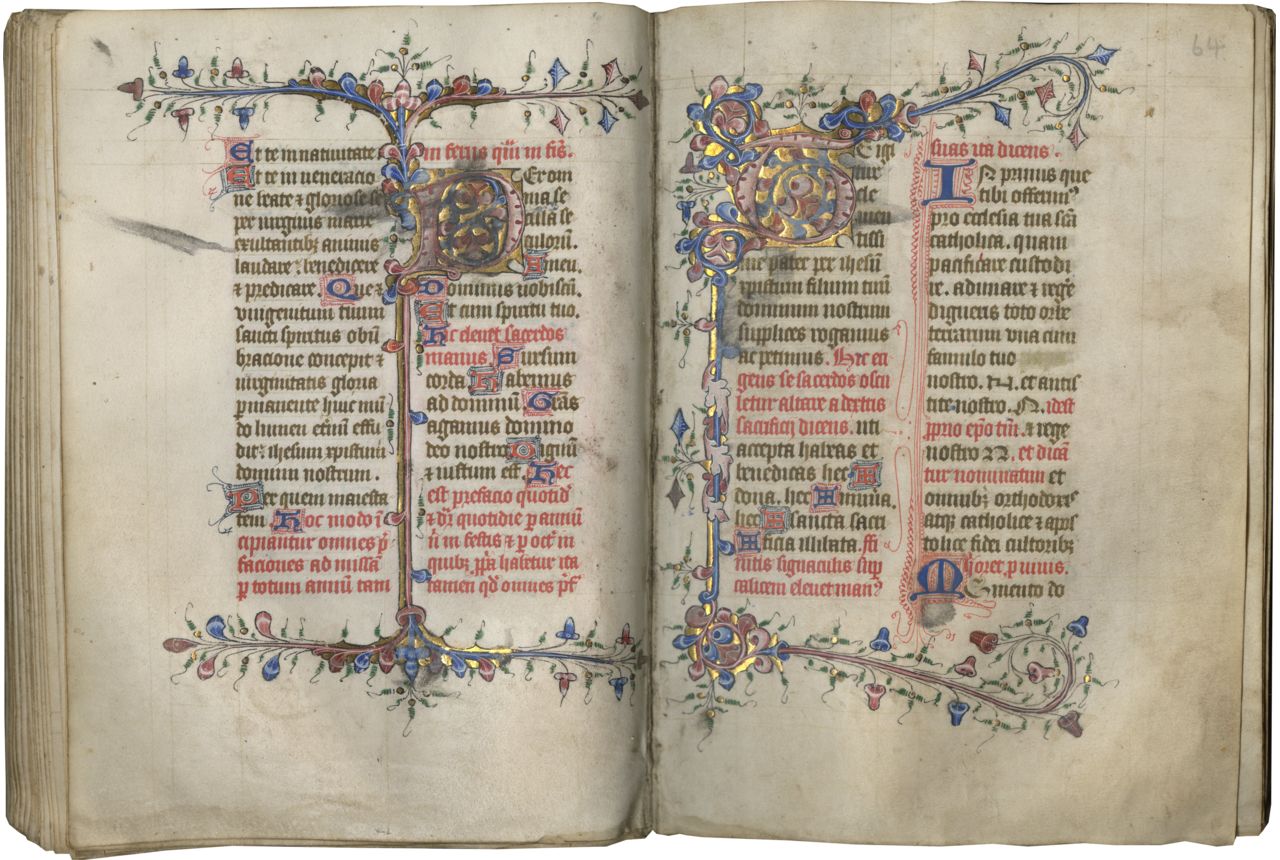 Et te in natiuitate
Et te in ueneracio
ne beate & gloriose se
per uirginis marie
exultantibꝫ animis
laudare & benedicere
& predicare. Que &
vnigenitum tuum
sancti spiritus obū
bracione concepit &
uirginitatis gloria
ꝑmanente huic mū
do lumen et̄nū effu
dit. ihesum xpistum
dominum nostrum.
Per quem maiesta
tem. Hoc modo ī
cipiuntur omnes p̄
faciones ad missā
ꝑ totum annum tam
in feriis quā in fīs.
Per om
nia se
cula se
culorū.
Amen.
Dominus uobiscū.
Et cum spiritu tuo.
Hic eleuet sacerdos
manus. Sursum
corda. Habemus
ad dominū. Grās
agamus domino
deo nostro. Dignū
& iustum est. Hec
est prefacio quotid
& dr̄ quotidie ꝑ annū
n̄ in festis & ꝑ oct̄ in
quibꝫ ꝓpa habetur ita
tamen qd̄ omnes p̄f
64
Te igi
tur
cle
men
tissi
me pater per ihesū
xpistum filium tuū
dominum nostrum
supplices rogamus
ac petimus. Hic eri
gens se sacerdos oscu
letur altare a dextris
sacrificij dicens. uti
accepta habeas et
benedicas hec
dona. hec munera.
hec sancta sacri
ficia illibata. ffi
nitis signaculis suꝑ
calicem eleuet manꝰ
suas ita dicens.
In primis que
tibi offerimꝰ
pro ecclesia tua scā
catholica. quam
pacificare custodi
re. adunare & regē
digneris toto orbe
terrarum vna cum
famulo tuo
nostro. N. et antis
tite nostro. N. idest
ꝓprio epō tm̄. & rege
nostro N. et dicā
tur nominatim et
omnibꝫ orthodoxis
atqꝫ catholice & apos
tolice fidei cultoribꝫ
Hic oret ꝓ uiuis.
Memento do